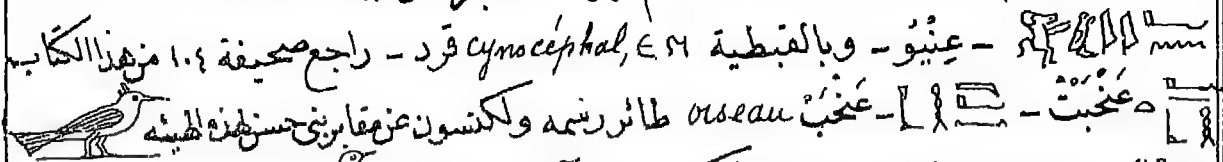 - عِنْيُو - وبالقبطية ЄΝ cynocéphal, قرد - راجع صحيفة ١٠٤ من هذا الكتاب
عَنْخَبْتْ - عَنْخَبْ oiseau طائر رسمه ولكنسون عن مقابر بنى حسن بهذه الهيئه